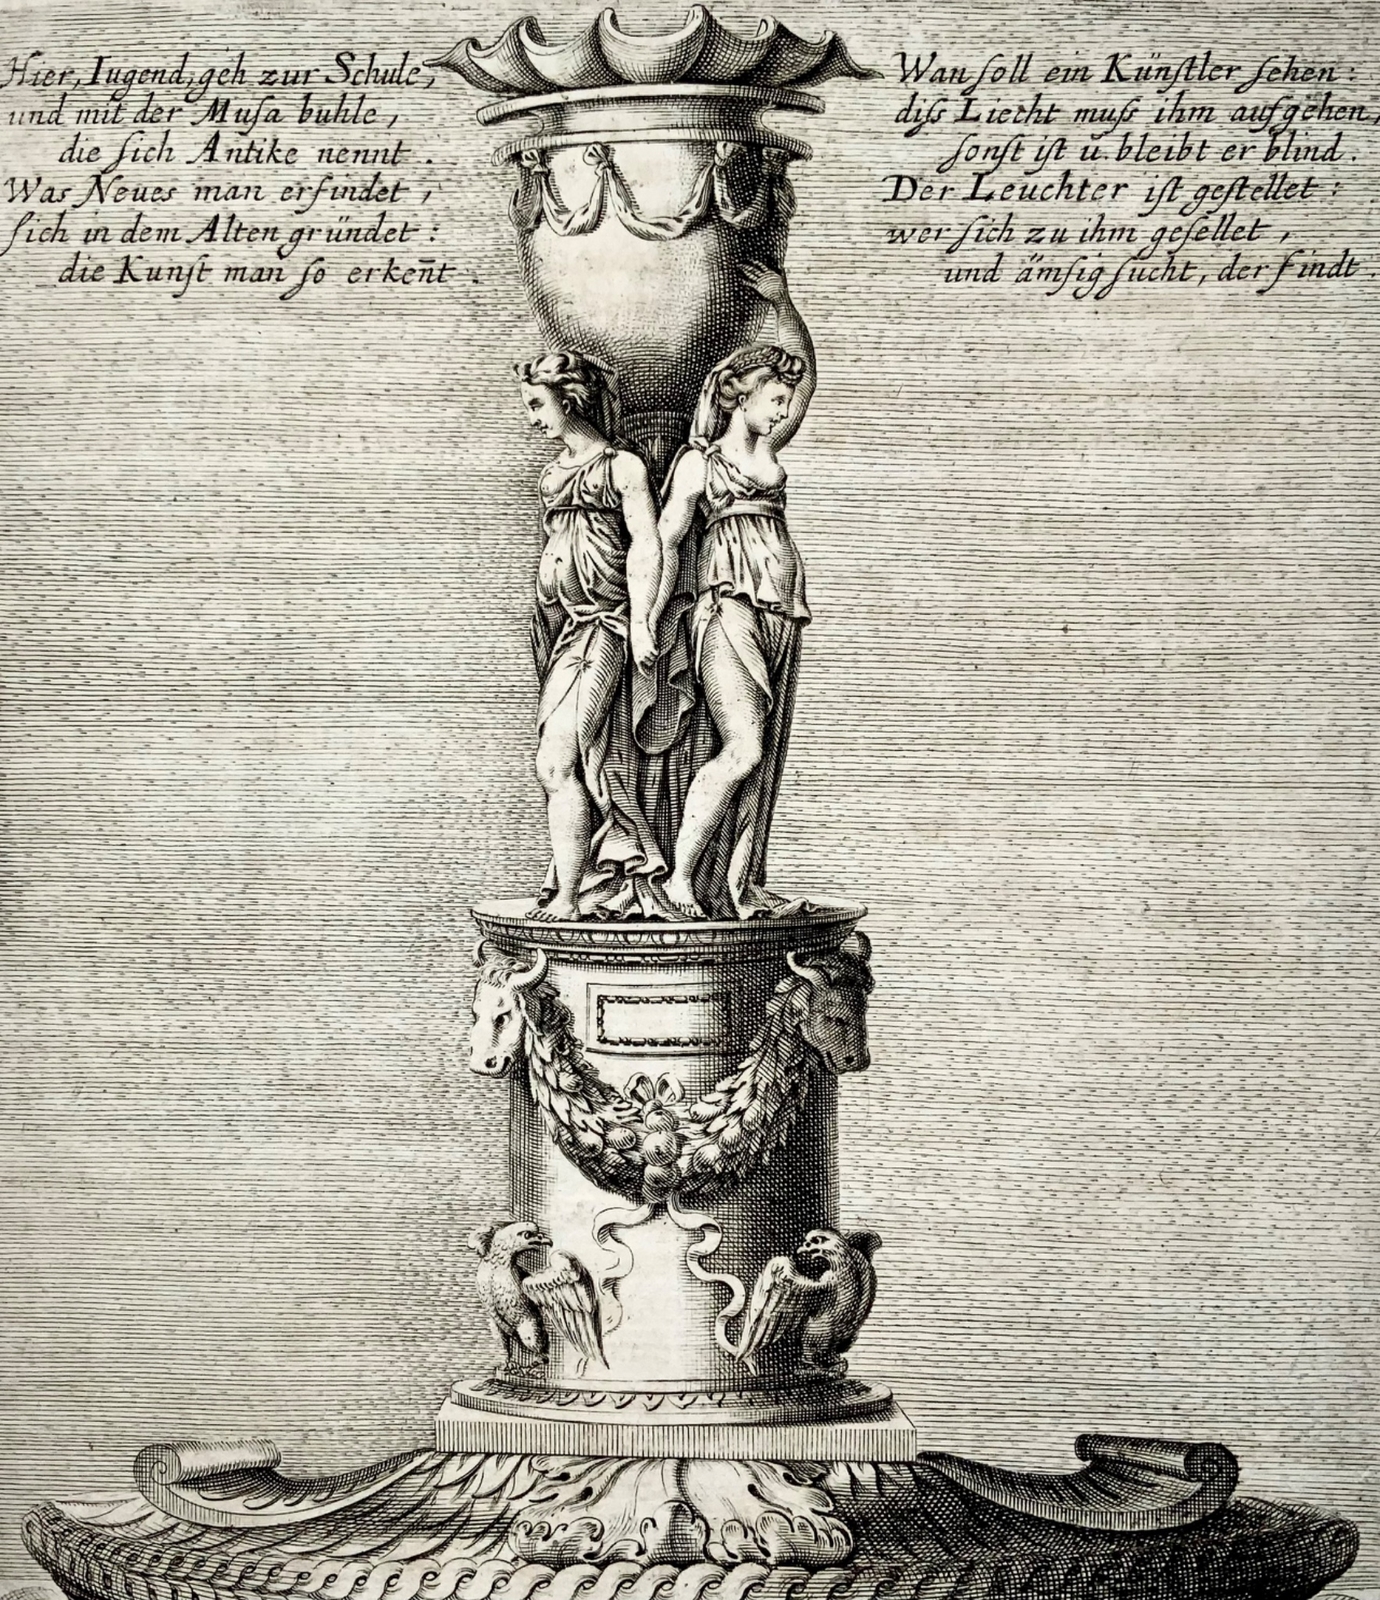 Hier, Iugend, geh zur Schule,
und mit der Muſa buhle,
die ſich Antike nennt.
Was Neues man erfindet,
ſich in dem Alten gründet:
die Kunſt man ſo erken̄t.
Wan ſoll ein Künſtler ſehen:
diſs Liecht muſs ihm aufgehen,
ſonſt iſt u. bleibt er blind.
Der Leuchter iſt geſtellet:
wer ſich zu ihm geſellet,
und ämſig ſucht, der findt.